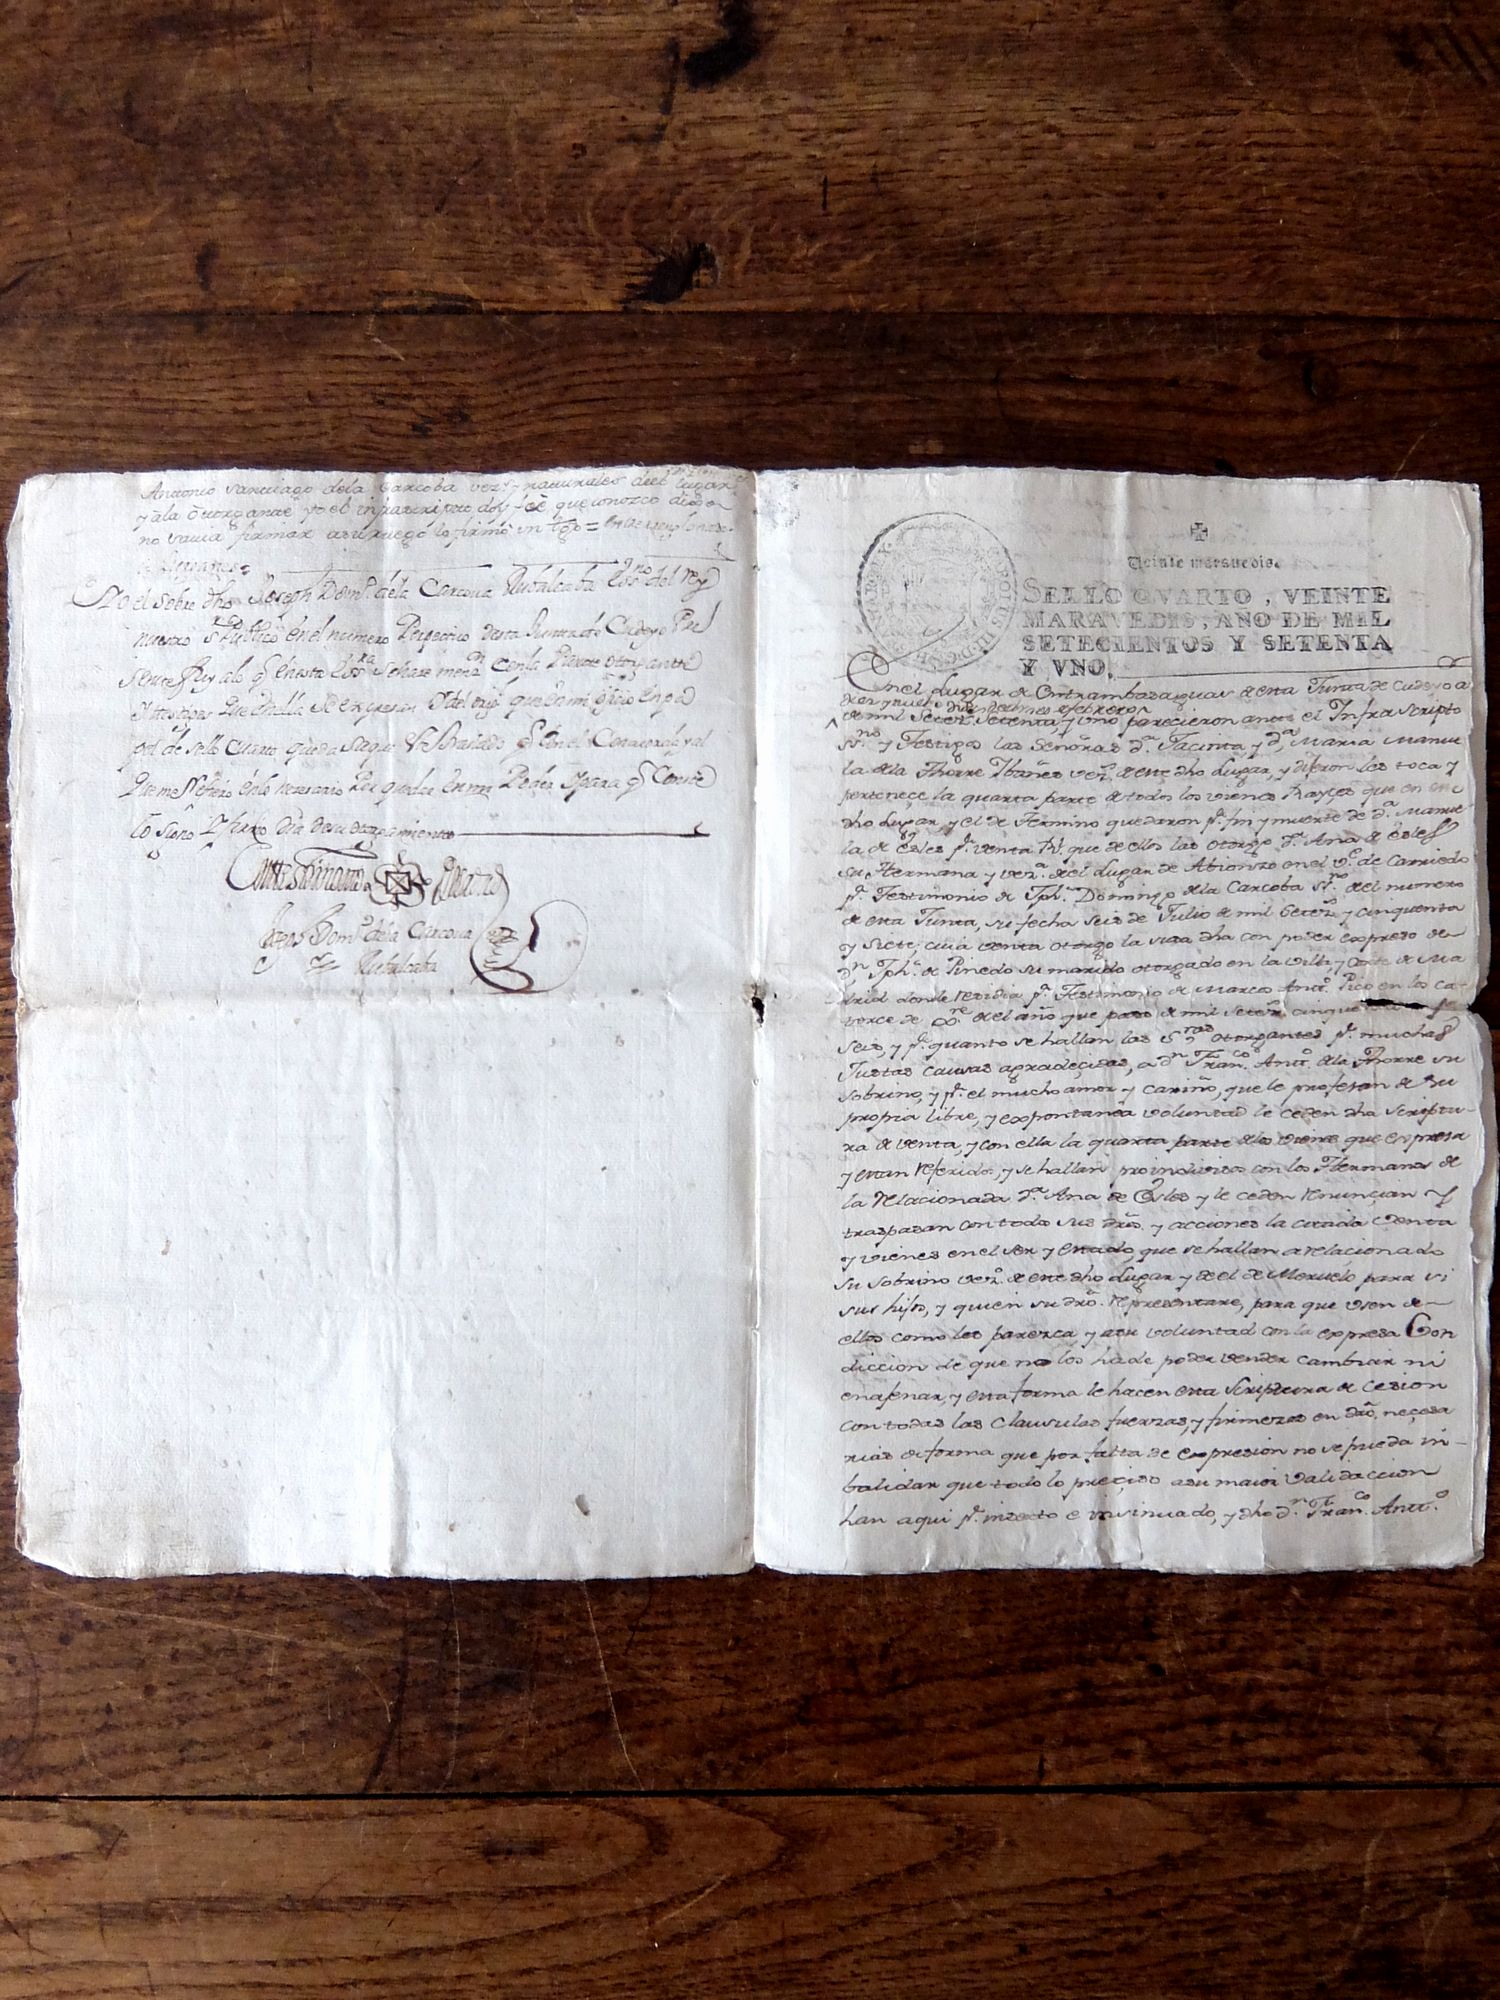 Antonio Santiago dela Carcoba vez.s y naturales deel lugar
y ala otorgante yo el infrascripto doy fee que conozco dijo
no savia firmar asu ruego lo firmó un tgo =
Yo el sobre dho Joseph Dom.o dela Carcova Rubalcaba Ess.no del Rey
nuestro s.r Publico en el numero Perpetuo desta Junta de Cudeyo Pre
sente fuy alo q enesta Ess.ra se haze men.on con la Parte otorgante
Ytestigos que enella se expresan
pel de sello cuarto queda
que me Refiero enlo nezesario Por quedar en mi Poder Ypara q Conste
lo signo Y firmo dia desu otorgamiento
En testimonio de Verdad
Joseph Dom.o dela Carcova
Rubalcaba
Veinte maravedis.
SELLO QVARTO, VEINTE
MARAVEDIS, AÑO DE MIL
SETECIENTOS Y SETENTA
Y VNO.
En el Lugar de Entrambasaguas de esta Junta de Cudeyo a
diez y nueve dias del mes de febrero
de mil Setez.s Setenta, y uno parecieron ante el Infra Scripto
ss.no y Testigos las Señoras d.a Jacinta, y d.a Maria Manue
la de la Thorre Ybañes vez.s de este dho Lugar, y dijeron les toca y
perteneçe la quarta parte de todos los vienes Rayçes que en este
dho Lugar, y el de Termino quedaron p.r fin y muerte de d.a Manue
la de Esles p.r venta R.l que de ellos las otorgo d.a Ana de Esles
su Hermana y vez.a del Lugar de Abionzo en el v.e de Carriedo
p.r Testimonio de Jph. Domingo de la Carcoba ss.no del numero
de esta Junta, su fecha seis de Julio de mil Setez.s y cinquenta
y Siete, cuia venta otorgo la susso dha con poder expreso de
d.n Jph. de Pinedo su marido otorgado en la villa, y Corte de Ma
drid donde residia p.r Testimonio de Marco Ant.o Pico en los ca-
torce de 8.re del año que paso de mil Setez.s cinquenta y
Seis, y p.r quanto se hallan las S.ras otorgantes p.r muchas
Justas causas agradeçidas, a d.n Fran.co Ant.o de la Thorre su
Sobrino, y p.r el mucho amor y cariño, que le profesan de su
propia libre, y expontanea voluntad le ceden dha Scriptu-
ra de venta, y con ella la quarta parte de los vienes que expresa
y estan referidos, y se hallan proindivisos con los Hermanos de
la Relacionada d.a Ana de Esles y le ceden renunçian y
traspasan con todos sus dros. y acciones la citada Venta
y vienes en el ser y estado, que se hallan a relaçionado
su sobrino vez.o de este dho Lugar y de el de Meruelo para si
sus hijos, y quien su dro. representare, para que usen de
ellos como les parezca y asu voluntad con la expresa Con
diccion de que no los ha de poder vender cambiar ni
enajenar, y esta forma le hacen esta Scriptura de Cesion
con todas las Clausulas fuerzas, y firmezas en dro. neçesa
rias de forma que por falta de expresion no se pueda in-
balidar que todo lo preçiso asu maior validaccion
han aqui p.r inserto e insinuado, y dho d.n Fran.co Ant.o